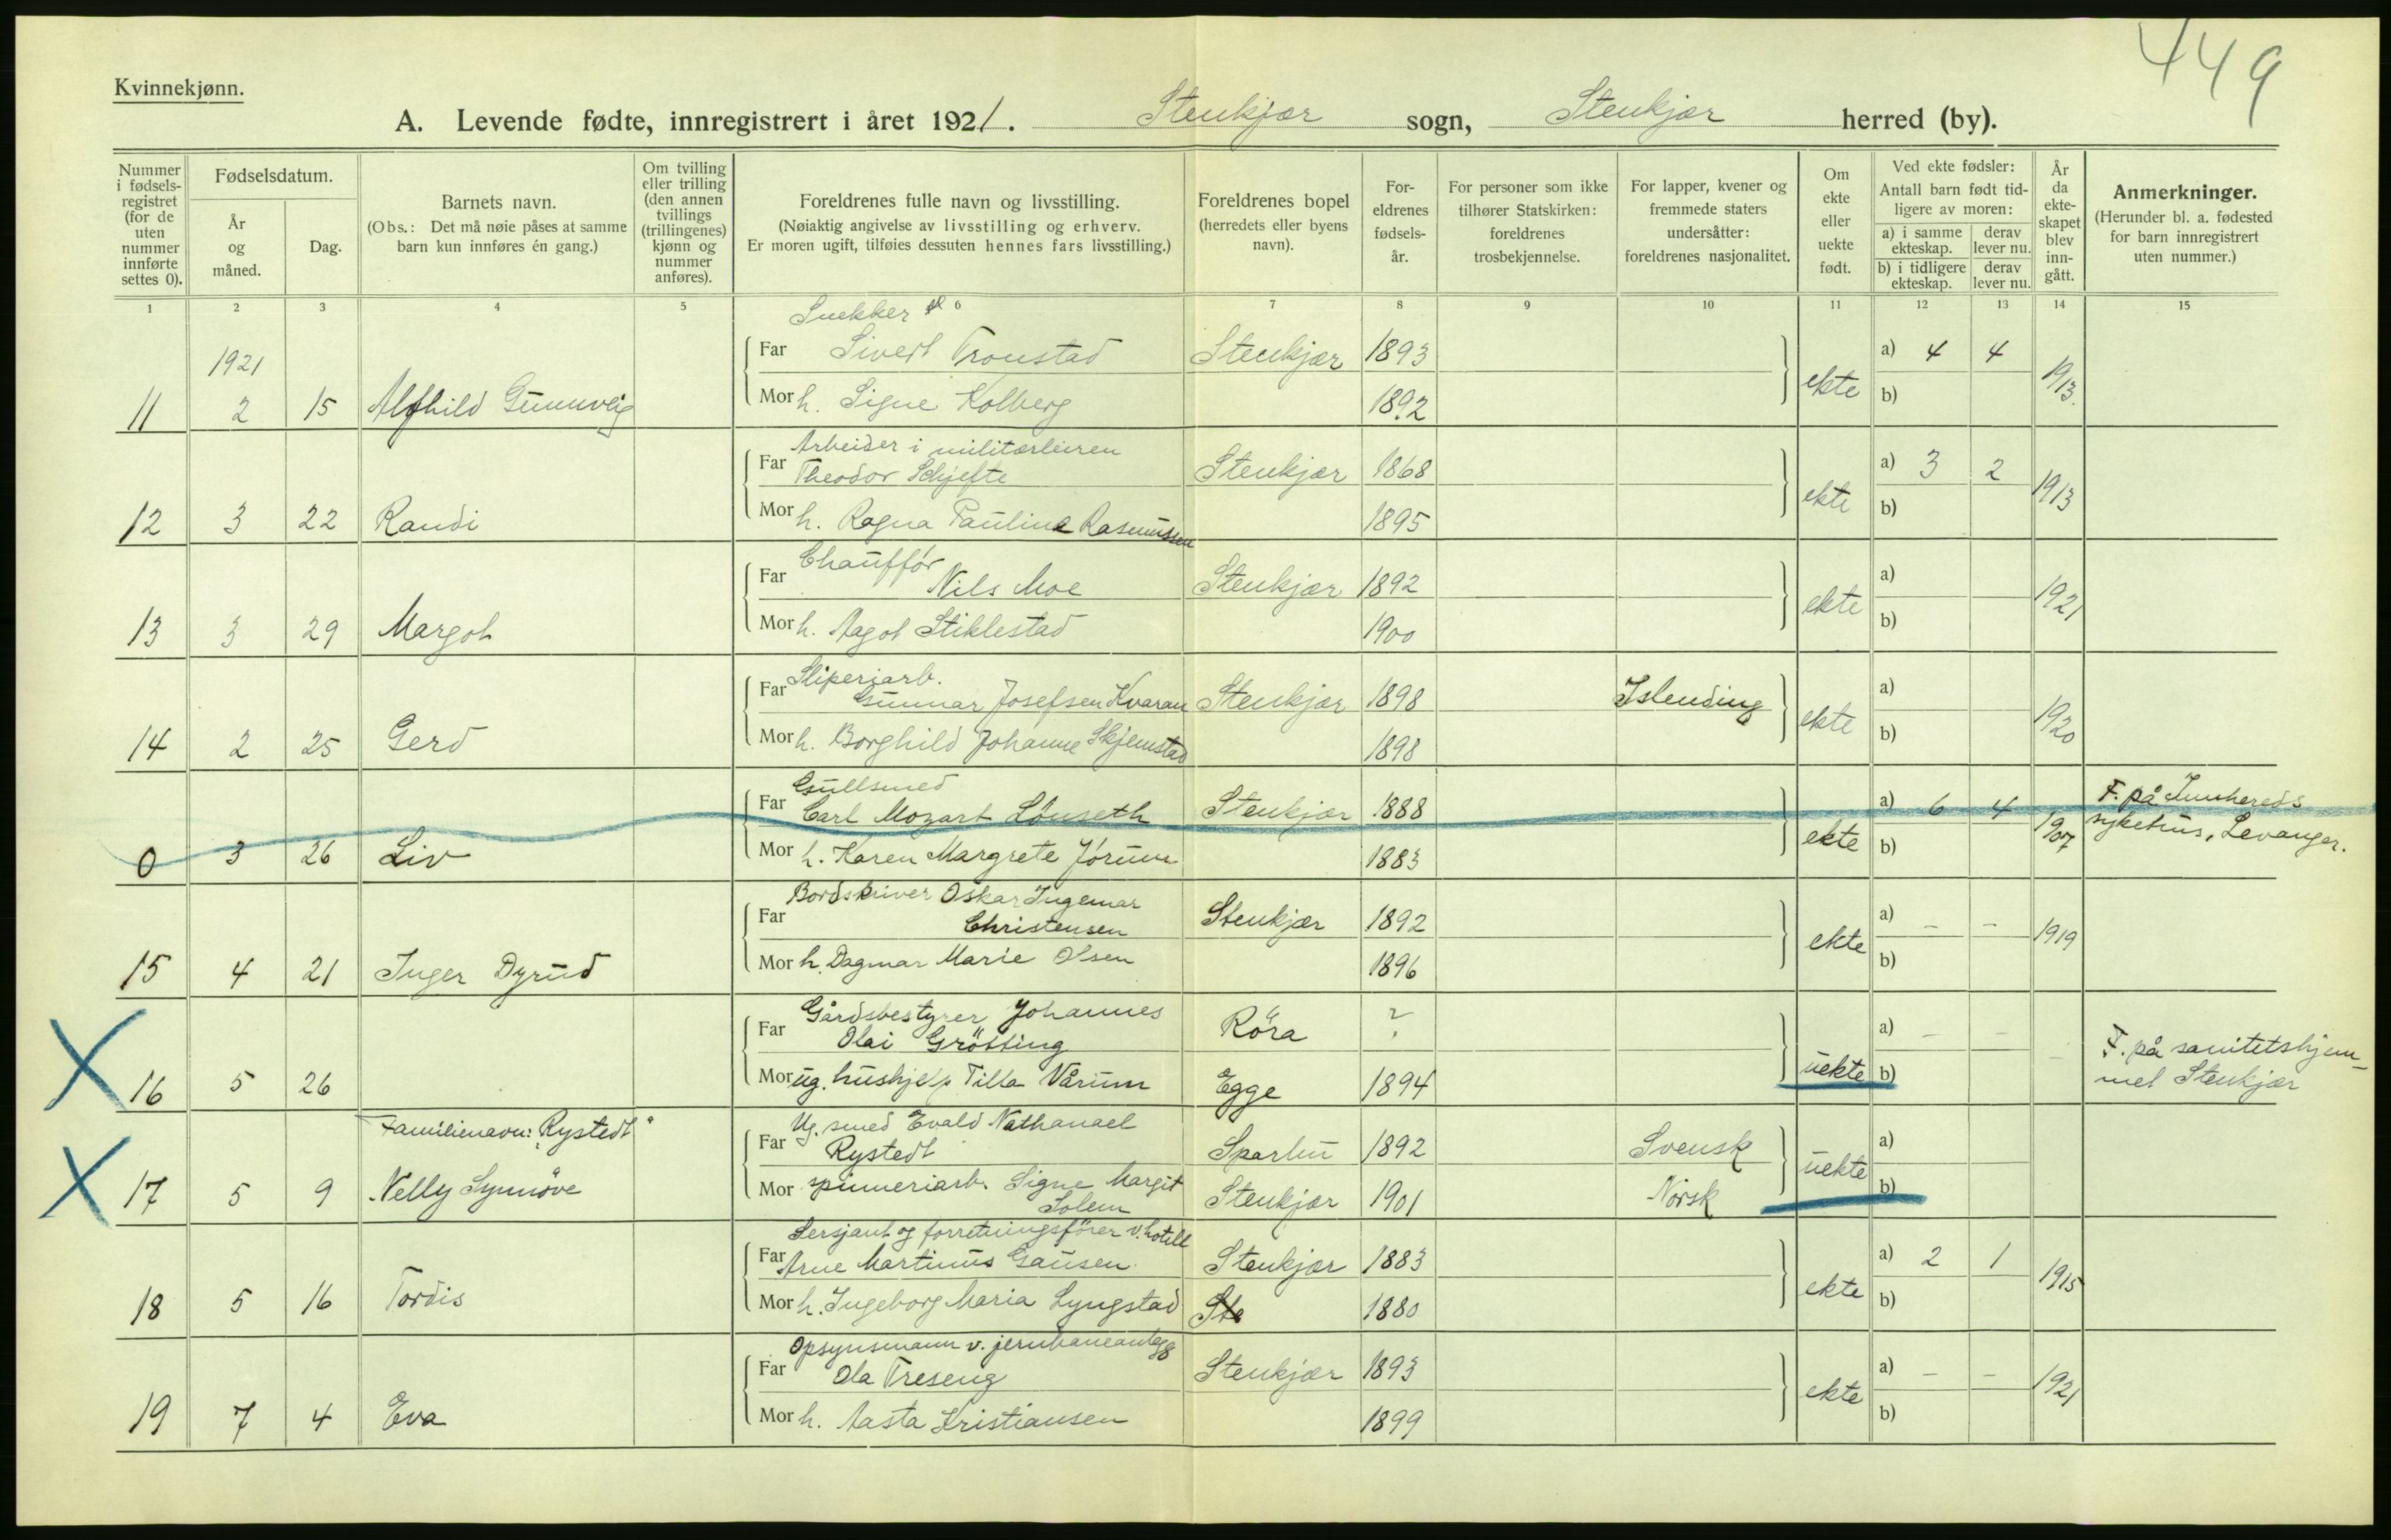 449
Kvinnekjønn.
A. Levende fødte, innregistrert i året 1921. Stenkjær sogn, Stenkjær herred (by).
Nummer i fødsels-registret (for de uten nummer innførte settes 0).
Fødselsdatum.
År og måned.
Dag.
Barnets navn.
(Obs.: Det må nøie påses at samme barn kun innføres én gang.)
Om tvilling eller trilling (den annen tvillings (trillingenes) kjønn og nummer anføres).
Foreldrenes fulle navn og livsstilling.
(Nøiaktig angivelse av livsstilling og erhverv.
Er moren ugift, tilføies dessuten hennes fars livsstilling.)
Foreldrenes bopel
(herredets eller byens navn).
For-eldrenes fødsels-år.
For personer som ikke tilhører Statskirken: foreldrenes trosbekjennelse.
For lapper, kvener og fremmede staters undersåtter: foreldrenes nasjonalitet.
Om ekte eller uekte født.
Ved ekte fødsler:
Antall barn født tid-ligere av moren:
a) i samme ekteskap.
derav lever nu.
b) i tidligere ekteskap.
derav lever nu.
År da ekte-skapet blev inn-gått.
Anmerkninger.
(Herunder bl. a. fødested for barn innregistrert uten nummer.)
1 2 3 4 5 6 7 8 9 10 11 12 13 14 15
Snekker
1921
Far Sivert Tronstad Stenkjær 1893 a) 4 4
11 2 15 Alfhild Gunnveig Mor h. Signe Kolberg 1892 ekte b) 1913.
Arbeider i militærleiren
Far Theodor Schjefte Stenkjær 1868 a) 3 2
12 3 22 Randi Mor h. Ragna Pauline Rasmussen 1895 ekte b) 1913
Chauffør
Far Nils Moe Stenkjær 1892 a)
13 3 29 Margot Mor h. Aagot Stiklestad 1900 ekte b) 1921
Sliperiarb.
Far Gunnar Josefsen Kvaran Stenkjær 1898 Islending a)
14 2 25 Gerd Mor h. Borghild Johanne Skjemstad 1898 ekte b) 1920
Gullsmed
Far Carl Mozart Lønseth Stenkjær 1888 a) 6 4 F. på Innhereds
0 3 26 Liv Mor h. Karen Margrete Jørum 1883 ekte b) 1907 sykehus, Levanger.
Bordskriver Oskar Ingemar
Far Christensen Stenkjær 1892 a) - -
15 4 21 Inger Dyrud Mor h. Dagmar Marie Olsen 1896 ekte b) 1919
Gårdsbestyrer Johannes
Far Olai Grötting Röra ? a) - - F. på sanitetshjem-
X 16 5 26 Mor ug. hushjelp Tilla Vårum Egge 1894 uekte b) - met Stenkjær
Familienavn: Rystedt
Ug. smed Evald Nathanael
Far Rystedt Sparbu 1892 Svensk a)
X 17 5 9 Nelly Synnöve Mor spinneriarb. Signe Margit Solem Stenkjær 1901 Norsk uekte b)
Sersjant og forretningsförer v. hotell
Far Arne Martinus Gausen Stenkjær 1883 a) 2 1
18 5 16 Tordis Mor h. Ingeborg Maria Lyngstad Ste 1880 ekte b) 1915
Opsynsmann v. jernbaneanlegg
Far Ola Treseng Stenkjær 1893 a) - -
19 7 4 Eva Mor h. Aasta Kristiansen 1899 ekte b) 1921